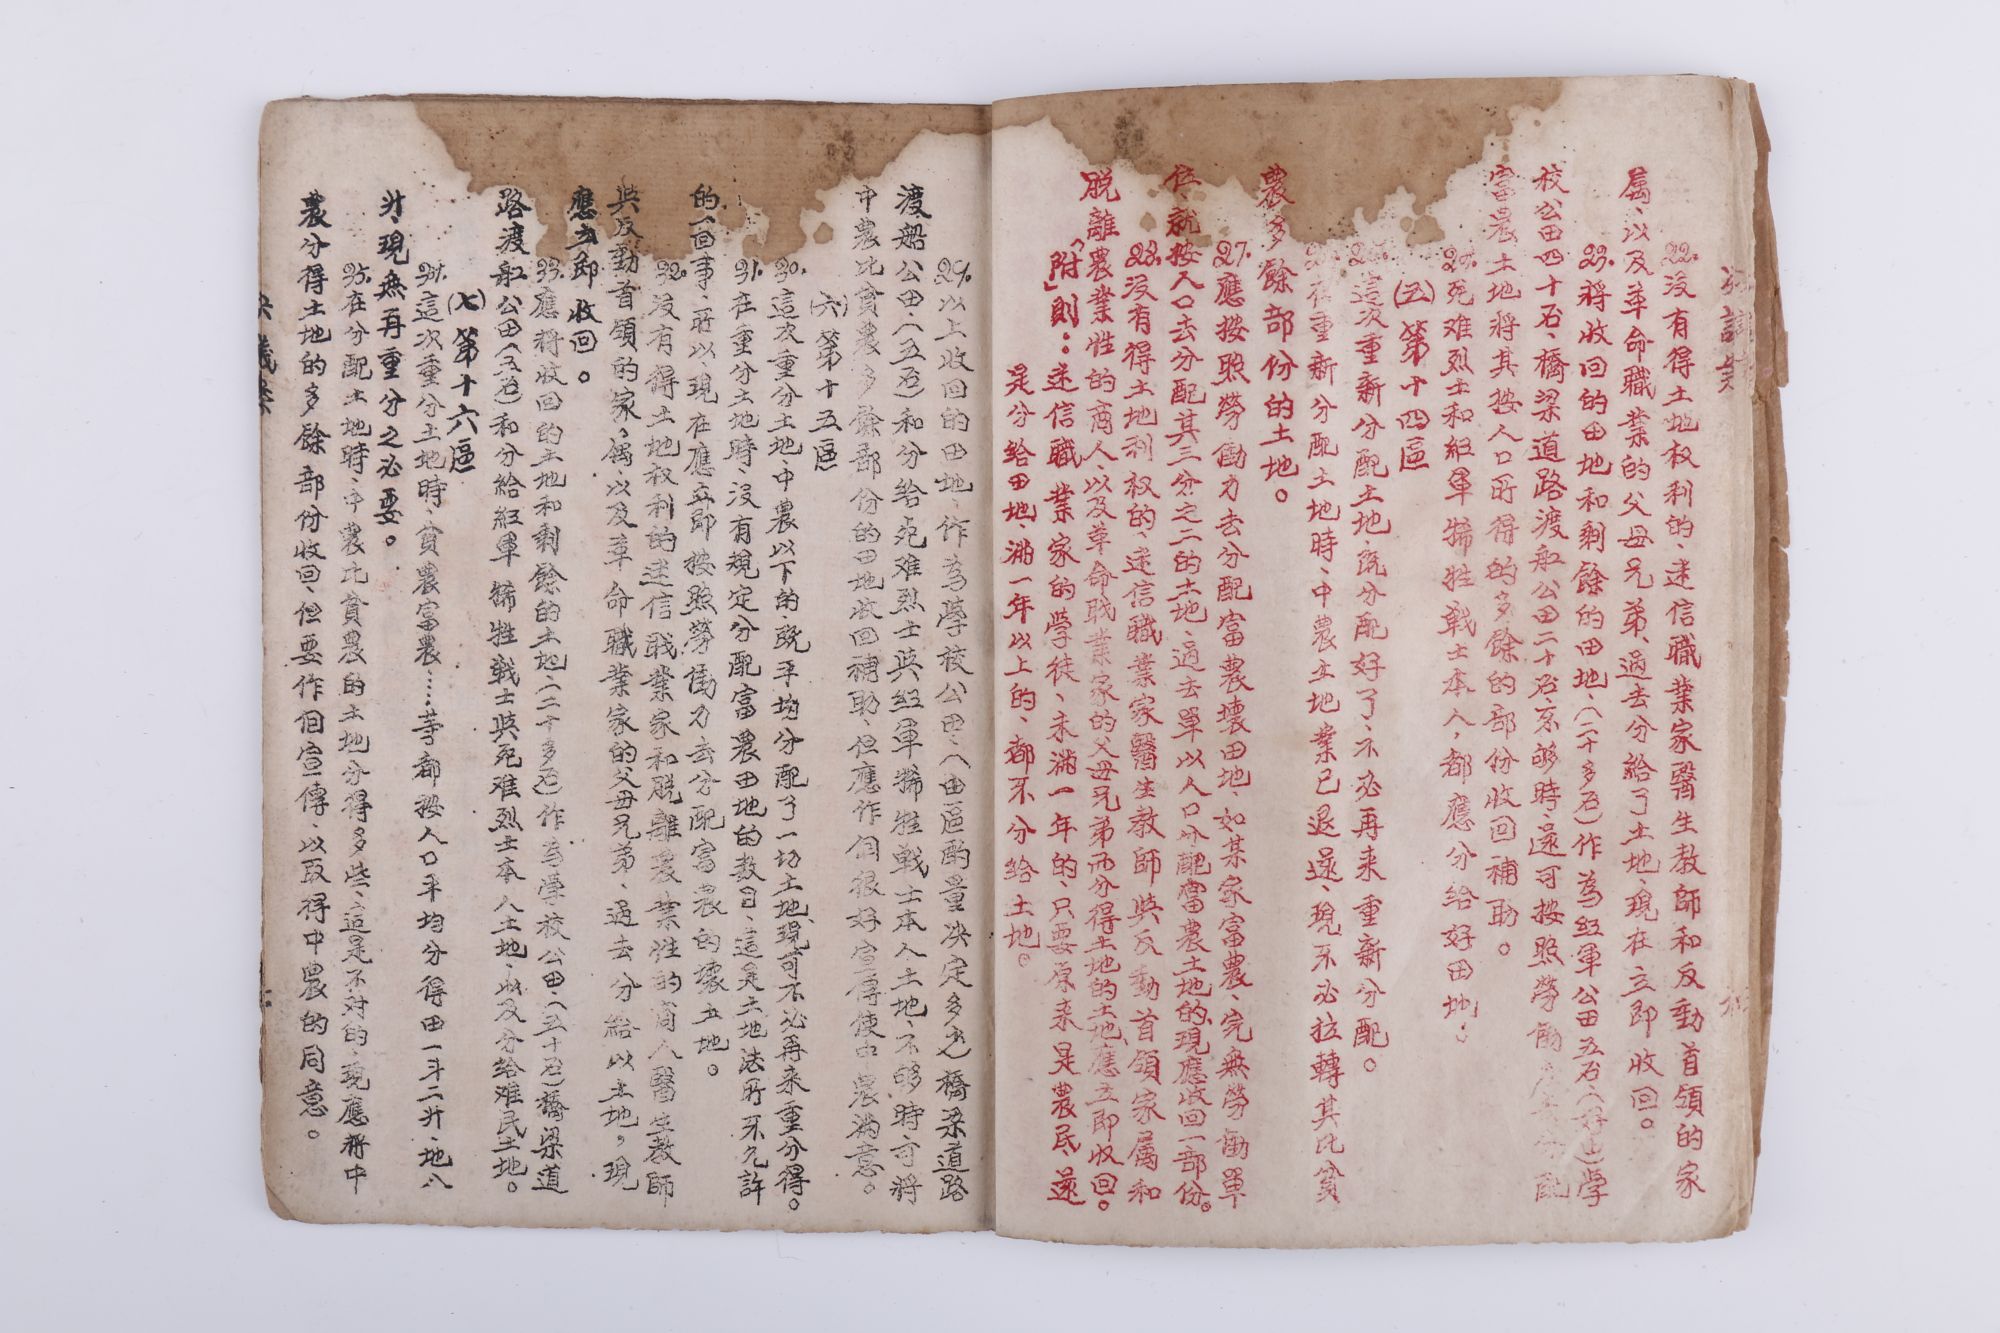 22.沒有得土地权利的、迷信職業家醫生教師和反動首領的家
屬、以及革命職業的父母兄弟、過去分給了土地、現在立即收回。
23.將收回的田地和剩餘的田地、(二十多石)作為紅軍公田五石(好田)學
校公田四十石、橋梁道路渡船公田二十石、不够時、還可按照勞働
富農土地將其按人口所得的多餘的部份收回補助。
24.死难烈士和紅軍犧牲戰士本人,都應分給好田地;
(五)第十四區
25.這次重新分配土地、既分配好了、不必再来重新分配。
26.在重新分配土地時、中農土地業已退還、現不必拉轉其比貧
農多餘部份的土地。
27.應按照勞働力去分配富農壞田地、如某家富農、完無勞働單
位、就按人口去分配其三分之二的土地、過去單以人口分配富農土地的、現應收回一部份。
28.沒有得土地利权的、迷信職業家醫生教師與反動首領家屬和
脱離農業性的商人、以及革命職業家的父母兄弟而分得土地的土地、應立即收回。
「附」則:迷信職業家的學徒、未滿一年的、只要原来是農民、還
是分給田地、滿一年以上的、都不分給土地。
29.以上收回的田地、作為學校公田、(由區酌量决定多少)橋梁道路
渡船公田、(五石)和分給死难烈士與紅軍犧牲戰士本人土地、不够時、可將
中農比貧農多餘部份的田地收回補助、但應作個很好宣傳使中農滿意。
(六)第十五區
30.這次重分土地、中農以下的、既平均分配了一切土地、現可不必再来重分得。
31.在重分土地時、沒有規定分配富農田地的数目、這是土地法所不允許
的一回事、所以、現在應立即按照勞働力去分配富農的壞土地。
32.沒有得土地权利的迷信職業家和脱離農業性的商人醫生教師
與反動首領的家,屬、以及革命職業家的父母兄弟、過去分給以土地,現
應立即收回。
33.應將收回的土地和剩餘的土地、(二十多石)作為學校公田、(五十石)橋梁道
路渡船公田(五石)和分給紅軍犧牲戰士與死难烈士本人土地、以及分給难民土地。
(七)第十六區
34.這次重分土地時、貧農富農……等都按人口平均分得田一斗二升、地八
升、現無再重分之必要。
35.在分配土地時、中農比貧農的土地分得多些、這是不对的、現應將中
農分得土地的多餘部份收回、但要作個宣傳、以取得中農的同意。
决議案